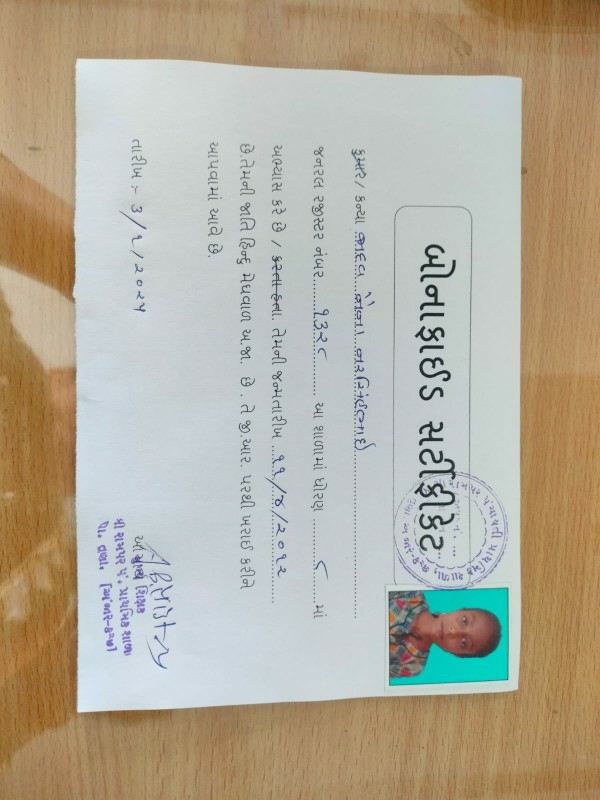 બોનાફાઈડ સર્ટીફીકેટ
કુમાર / કન્યા જાદવ નરસિંહભાઈ
જનરલ રજીસ્ટર નંબર ૧૩૨૮ આ શાળામાં ધોરણ ૮ માં
અભ્યાસ કરે છે / કરતા હતા. તેમની જન્મતારીખ ૧૧/૪/૨૦૧૨
છે.તેમની જાતિ હિન્દુ મેઘવાળ અ.જા. છે . તે જી.આર. પરથી ખરાઈ કરીને
આપવામાં આવે છે.
તારીખ :- ૩/૧/૨૦૨૫
આચાર્ય
પ્રાથમિક શાળા